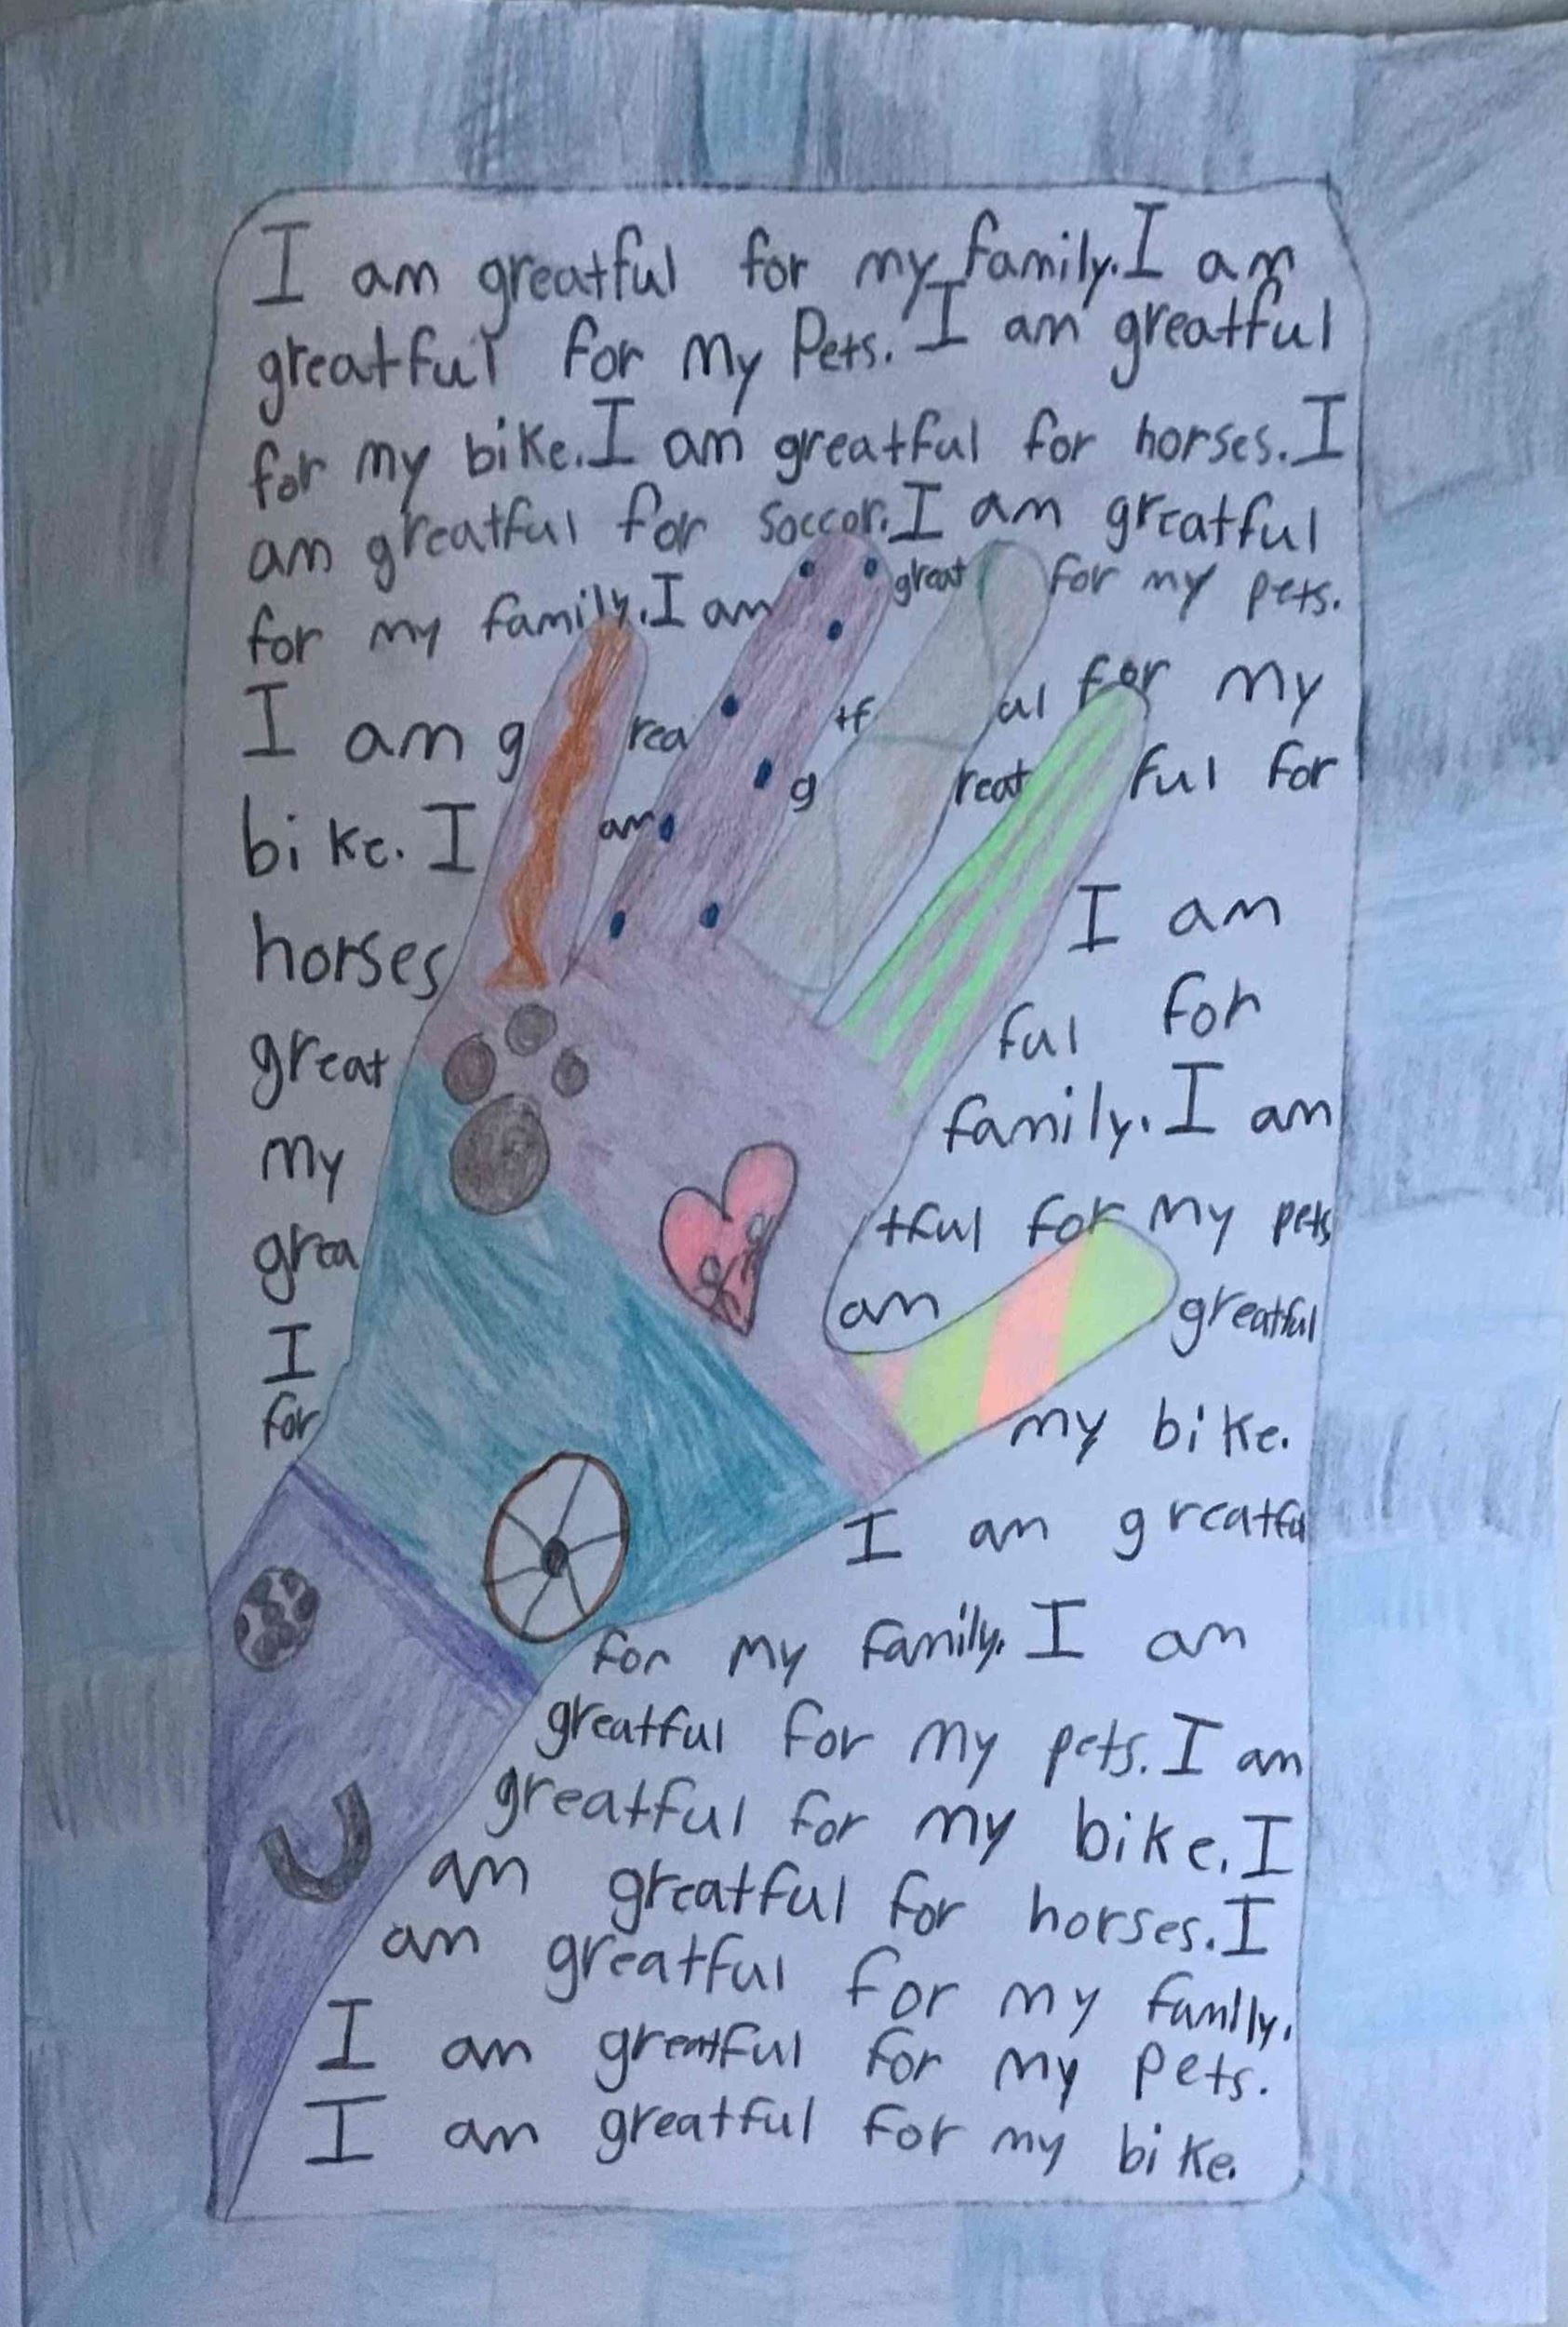 I am greatful for my family. I am
greatful for my Pets. I am greatful
for my bike. I am greatful for horses. I
am greatful for soccor. I am greatful
for my family. I am great for my pets.
I am g rea tf ul for my
bike. I am g reat ful for
horses I am
great ful for
my family. I am
grea tful for my pets
I am greatful
for my bike.
I am greatful
for my family. I am
greatful for my pets. I am
greatful for my bike. I
am greatful for horses. I
am greatful for my family.
I am greatful for my Pets.
I am greatful for my bike.